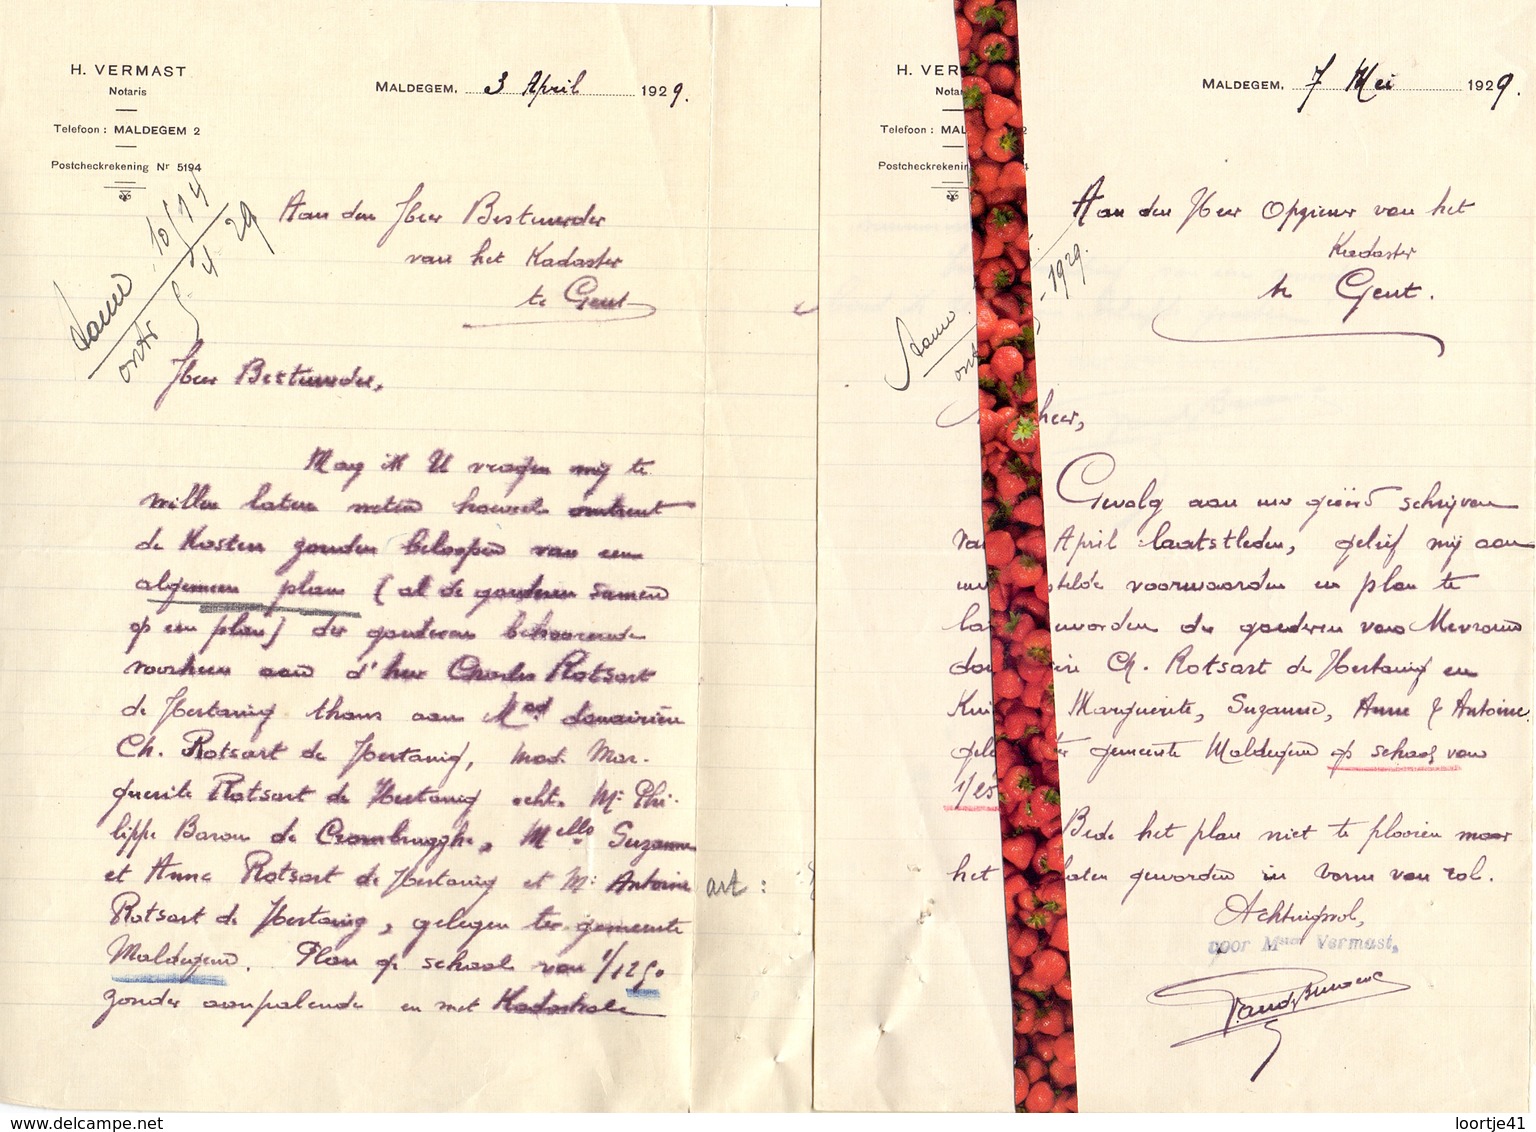 H. VERMAST
Notaris
Telefoon : MALDEGEM 2
Postcheckrekening Nr 5194
MALDEGEM, 3 April 1929.
Aan den Heer Bestuurder
van het Kadaster
te Gent
Heer Bestuurder,
Mag ik U vragen mij te
willen laten weten hoeveel omtrent
de Kosten zouden beloopen van een
algemeen plan (al de goederen samen
op een plan) der goederen behoorende
voorheen aan d'heer Charles Rotsart
de Hertaing thans aan Mad douairière
Ch. Rotsart de Hertaing, Mad. Mar-
guerite Rotsart de Hertaing echt. Mr Phi-
lippe Baron de Crombrugghe, Melle Suzanne
et Anne Rotsart de Hertaing et Mr Antoine
art :
Rotsart de Hertaing, gelegen ter gemeente
Maldegem. Plan op schaal van 1/1250
zonder aanpalende en met Kadastrale
H. VER
Nota
Telefoon : MAL 2
Postcheckrekenin
MALDEGEM, 7 Mei 1929.
Aan den Heer Opziener van het
Kadaster
te Gent.
- 1929.
heer,
Gevolg aan uw geëerd schrijven
van April laatstleden, gelief mij aan
uw stelde voorwaarden een plan te
la worden der goederen van Mevrouw
dou ère Ch. Rotsart de Hertaing en
Kin Marguerite, Suzanne, Anne & Antoine
gele ter gemeente Maldegem op schaal van
1/25
Bede het plan niet te plooien maar
het laten geworden in vorm van rol.
Achtingsvol,
voor Mter Vermast,
www.delcampe.net
loortje41